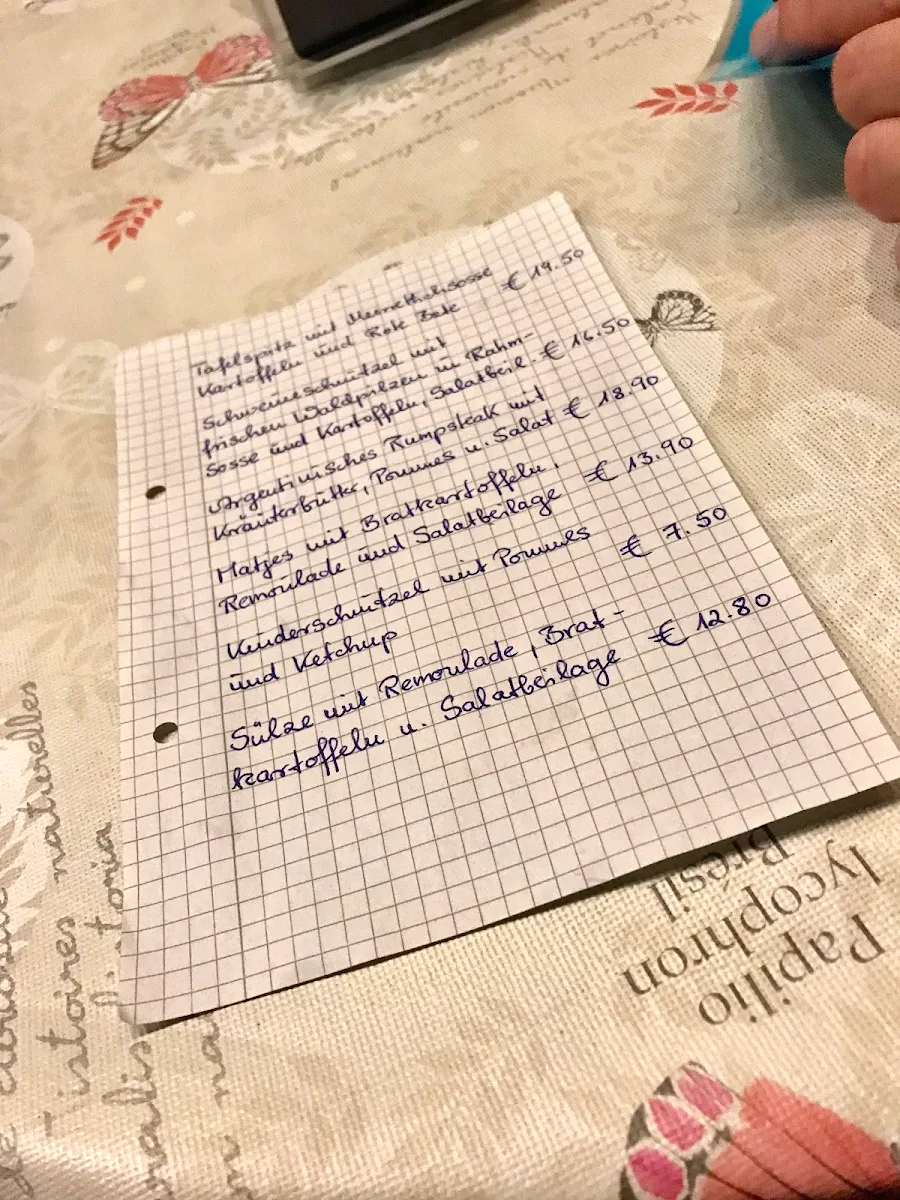 Tafelspitz mit Meerrettichsosse
Kartoffeln und Rote Bete € 19.50
Schweineschnitzel mit
frischen Waldpilzen in Rahm-
sosse und Kartoffeln, Salatbeil. € 16.50
Argentinisches Rumpsteak mit
Kräuterbutter, Pommes u. Salat € 18.90
Matjes mit Bratkartoffeln,
Remoulade und Salatbeilage € 13.90
Kinderschnitzel mit Pommes
und Ketchup € 7.50
Sülze mit Remoulade, Brat-
kartoffeln u. Salatbeilage € 12.80
Papilio
lycophron
Brésil
istoires naturelles